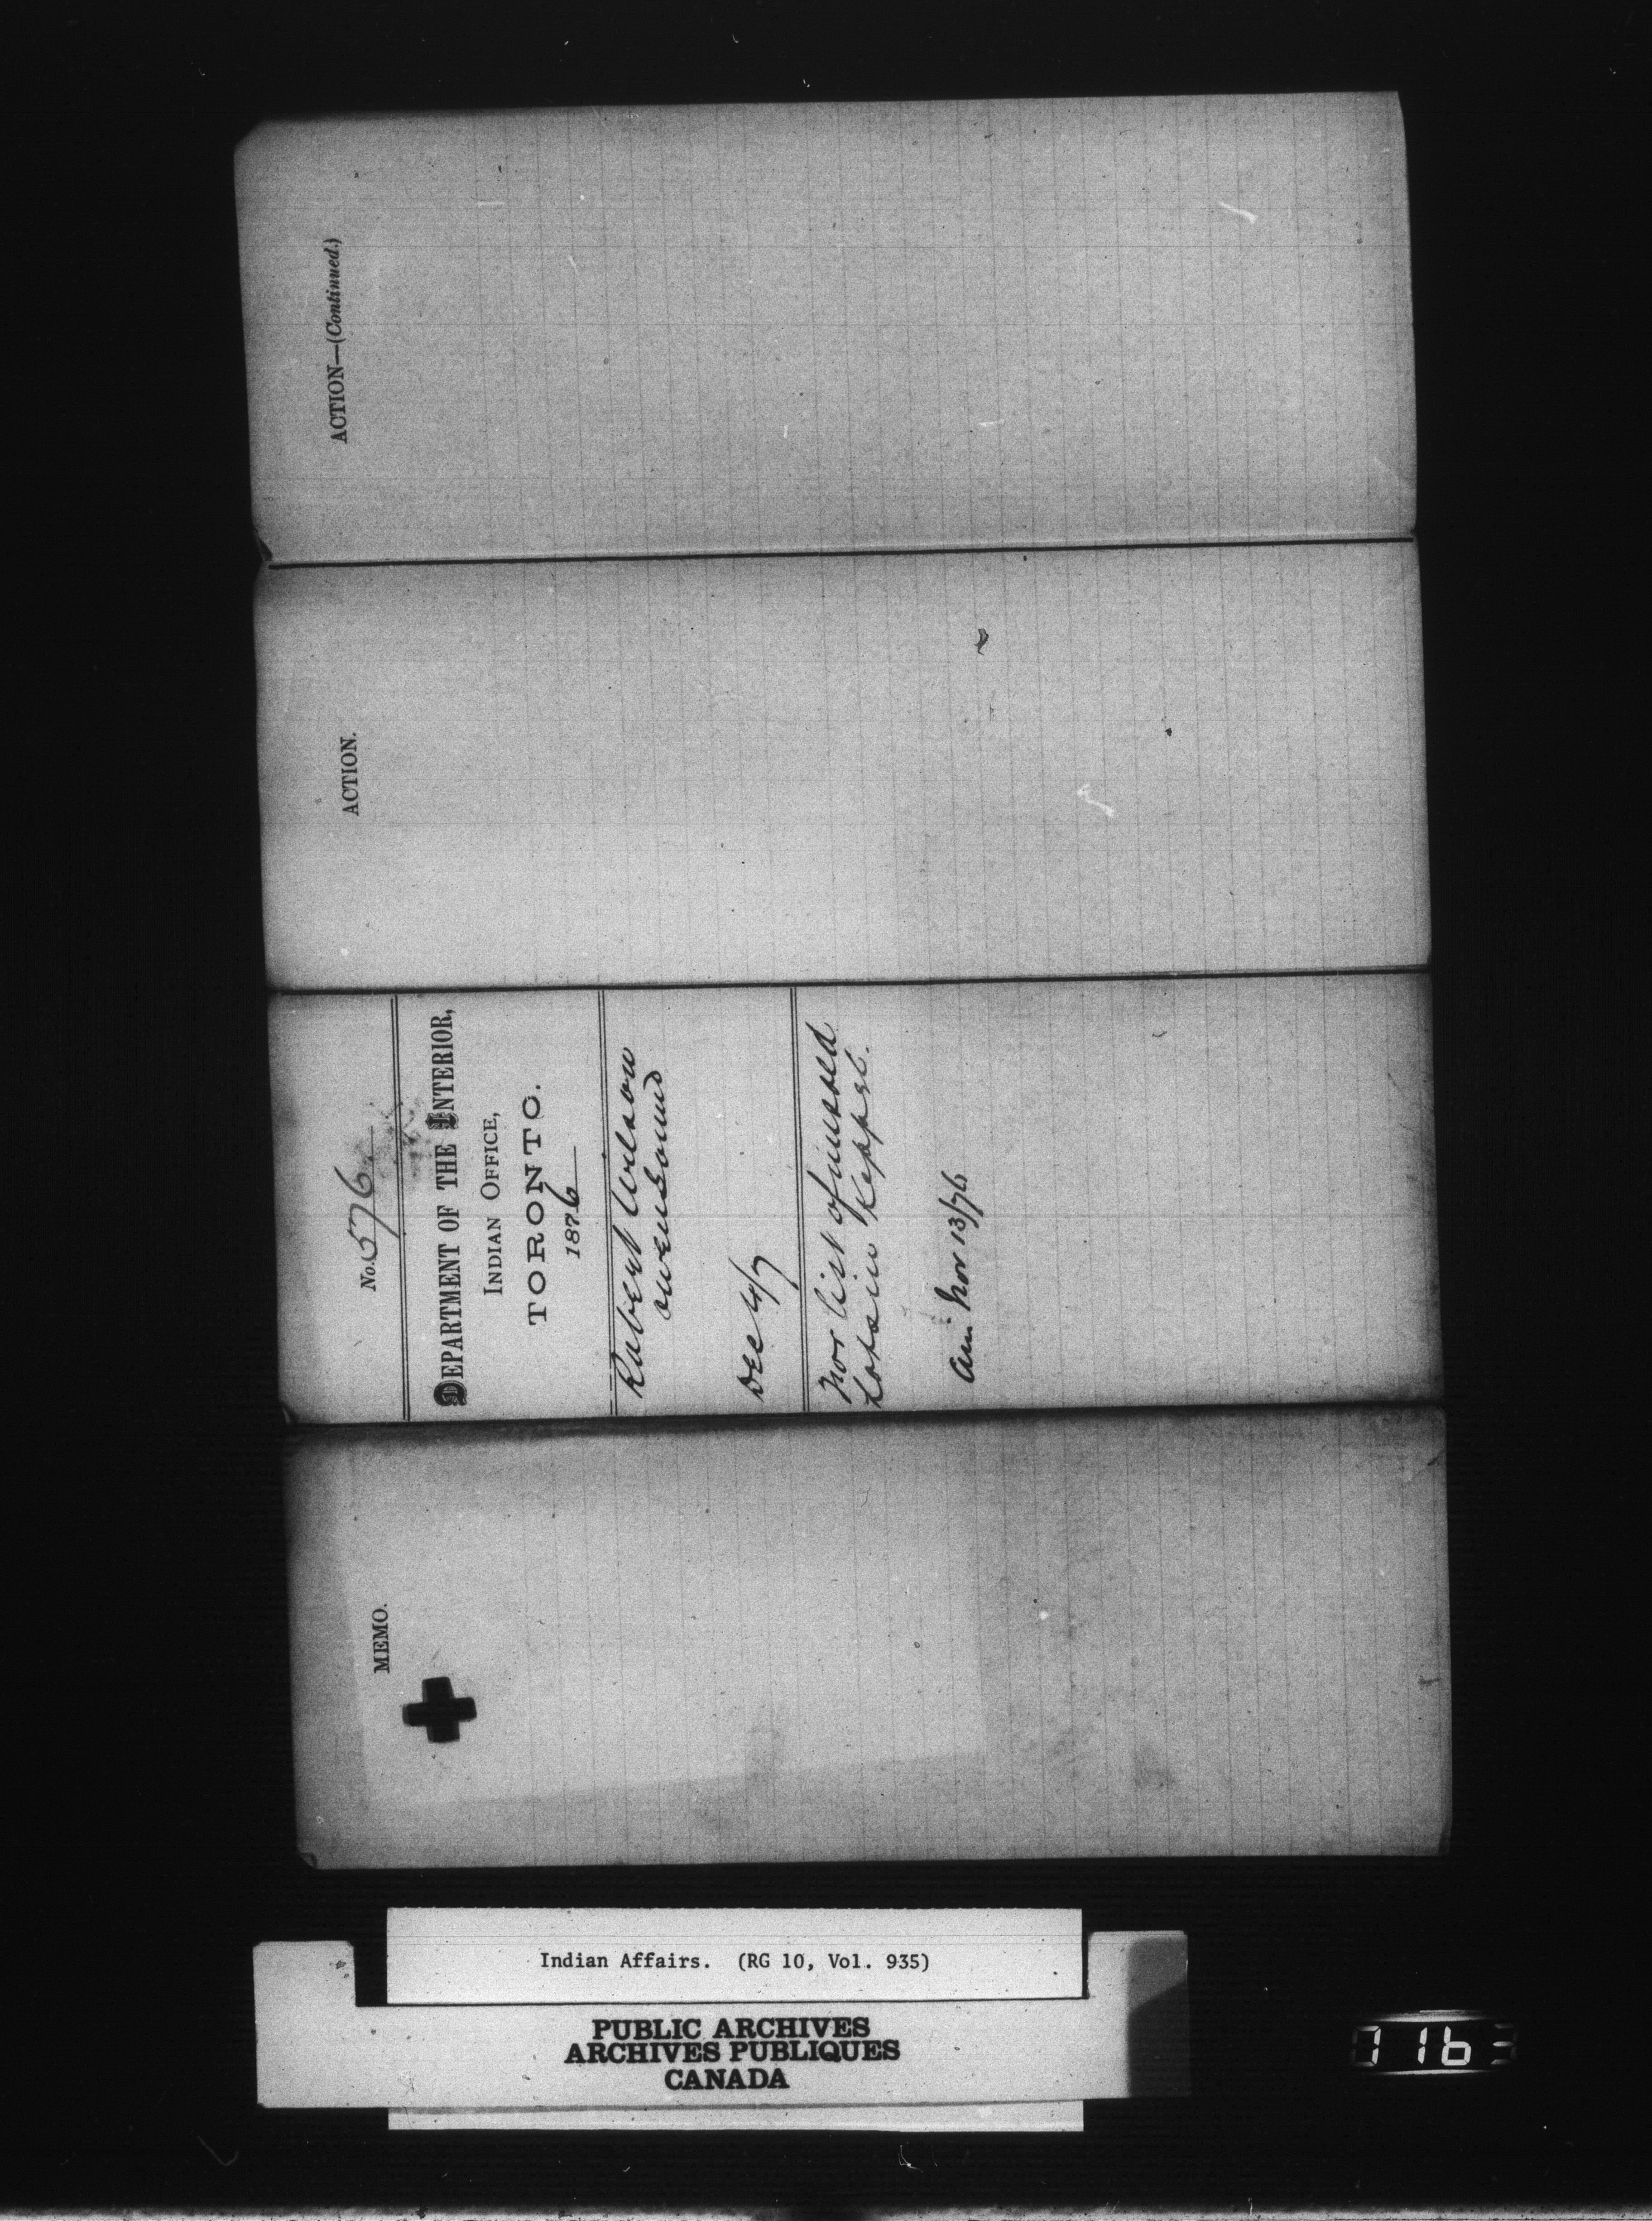 ACTION—(Continued.)
ACTION.
No. 576
DEPARTMENT OF THE INTERIOR,
INDIAN OFFICE,
TORONTO.
1876
Robert Wilson
Owen Sound
Dec 4/7
For list of unsold
Lots in Keppel.
Nov 13/76
MEMO.
Indian Affairs. (RG 10, Vol. 935)
PUBLIC ARCHIVES
ARCHIVES PUBLIQUES
CANADA